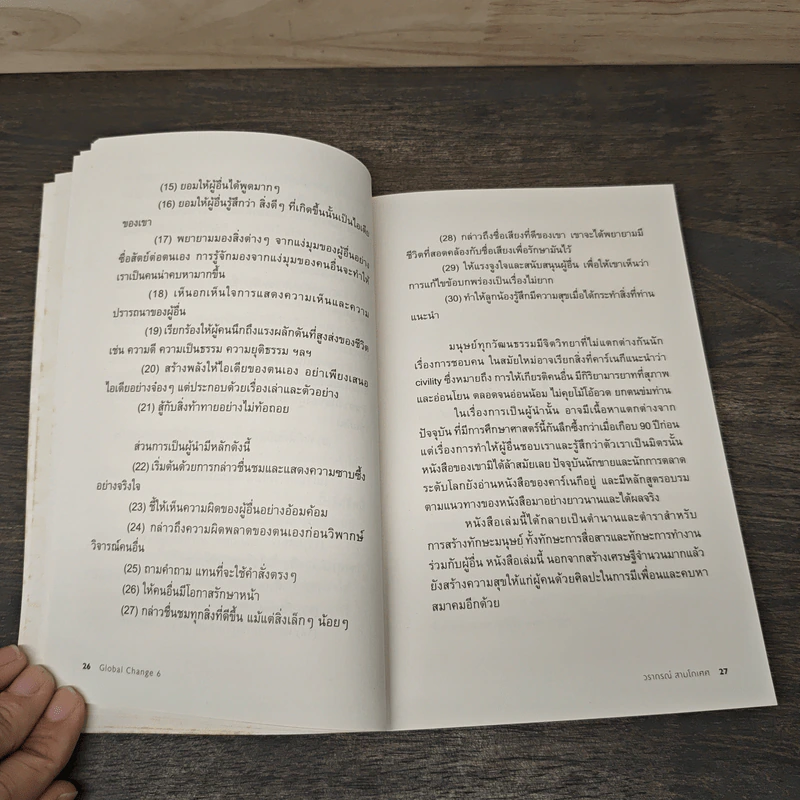 (15) ยอมให้ผู้อื่นได้พูดมากๆ
(16) ยอมให้ผู้อื่นรู้สึกว่า สิ่งดีๆ ที่เกิดขึ้นนั้นเป็นไอเดีย
ของเขา
(17) พยายามมองสิ่งต่างๆ จากแง่มุมของผู้อื่นอย่าง
ซื่อสัตย์ต่อตนเอง การรู้จักมองจากแง่มุมของคนอื่นจะทำให้
เราเป็นคนน่าคบหามากขึ้น
(18) เห็นอกเห็นใจการแสดงความเห็นและความ
ปรารถนาของผู้อื่น
(19) เรียกร้องให้ผู้คนนึกถึงแรงผลักดันที่สูงส่งของชีวิต
เช่น ความดี ความเป็นธรรม ความยุติธรรม ฯลฯ
(20) สร้างพลังให้ไอเดียของตนเอง อย่าเพียงเสนอ
ไอเดียอย่างจ๋องๆ แต่ประกอบด้วยเรื่องเล่าและตัวอย่าง
(21) สู้กับสิ่งท้าทายอย่างไม่ท้อถอย
ส่วนการเป็นผู้นำมีหลักดังนี้
(22) เริ่มต้นด้วยการกล่าวชื่นชมและแสดงความซาบซึ้ง
อย่างจริงใจ
(23) ชี้ให้เห็นความผิดของผู้อื่นอย่างอ้อมค้อม
(24) กล่าวถึงความผิดพลาดของตนเองก่อนวิพากษ์
วิจารณ์คนอื่น
(25) ถามคำถาม แทนที่จะใช้คำสั่งตรงๆ
(26) ให้คนอื่นมีโอกาสรักษาหน้า
(27) กล่าวชื่นชมทุกสิ่งที่ดีขึ้น แม้แต่สิ่งเล็กๆ น้อยๆ
26 Global Change 6
(28) กล่าวถึงชื่อเสียงที่ดีของเขา เขาจะได้พยายามมี
ชีวิตที่สอดคล้องกับชื่อเสียงเพื่อรักษามันไว้
(29) ให้แรงจูงใจและสนับสนุนผู้อื่น เพื่อให้เขาเห็นว่า
การแก้ไขข้อบกพร่องเป็นเรื่องไม่ยาก
(30) ทำให้ลูกน้องรู้สึกมีความสุขเมื่อได้กระทำสิ่งที่ท่าน
แนะนำ
มนุษย์ทุกวัฒนธรรมมีจิตวิทยาที่ไม่แตกต่างกันนัก
เรื่องการชอบคน ในสมัยใหม่อาจเรียกสิ่งที่คาร์เนกีแนะนำว่า
civility ซึ่งหมายถึง การให้เกียรติคนอื่น มีกิริยามารยาทที่สุภาพ
และอ่อนโยน ตลอดจนอ่อนน้อม ไม่คุยโม้โอ้อวด ยกตนข่มท่าน
ในเรื่องการเป็นผู้นำนั้น อาจมีเนื้อหาแตกต่างจาก
ปัจจุบัน ที่มีการศึกษาศาสตร์นี้กันลึกซึ้งกว่าเมื่อเกือบ 90 ปีก่อน
แต่เรื่องการทำให้ผู้อื่นชอบเราและรู้สึกว่าตัวเราเป็นมิตรนั้น
หนังสือของเขามิได้ล้าสมัยเลย ปัจจุบันนักขายและนักการตลาด
ระดับโลกยังอ่านหนังสือของคาร์เนกีอยู่ และมีหลักสูตรอบรม
ตามแนวทางของหนังสือมาอย่างยาวนานและได้ผลจริง
หนังสือเล่มนี้ได้กลายเป็นตำนานและตำราสำหรับ
การสร้างทักษะมนุษย์ ทั้งทักษะการสื่อสารและทักษะการทำงาน
ร่วมกับผู้อื่น หนังสือเล่มนี้ นอกจากสร้างเศรษฐีจำนวนมากแล้ว
ยังสร้างความสุขให้แก่ผู้คนด้วยศิลปะในการมีเพื่อนและคบหา
สมาคมอีกด้วย
วรากรณ์ สามโกเศศ 27